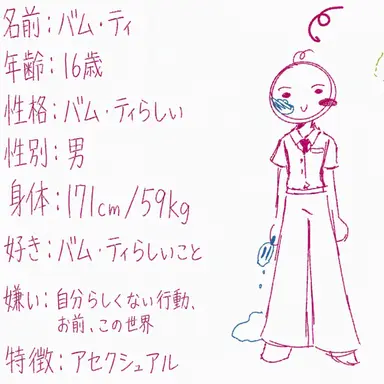 名前：バム・ティ
年齢：16歳
性格：バム・ティらしい
性別：男
身体：171cm/59kg
好き：バム・ティらしいこと
嫌い：自分らしくない行動、
お前、この世界
特徴：アセクシュアル